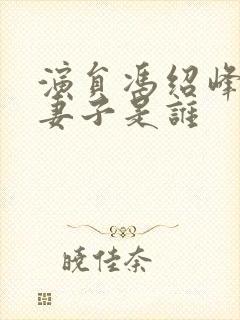 演員馮紹峰
妻子是誰
曉佳奈